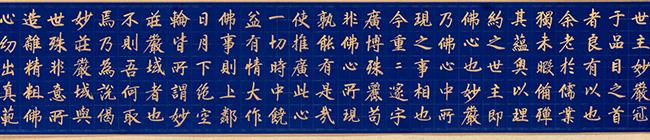 世主妙嚴冠
于品目之首
者良有以也
余老於儒業
獨未暇備殫
其蘊奧以理
約之世主即
佛心也妙嚴
乃佛心所
現之事相也
今重二邃宇
廣博殊麗苟
非佛心所現
孰能有是哉
使推廣此心
一切時中饒
益有情大作
佛事則上鄰
日月下絕空
輪皆所謂妙
莊嚴域者也
不則吾何取
焉乃為說偈
妙莊嚴域與
世殊非意所
造離精粗佛
心幻出真範